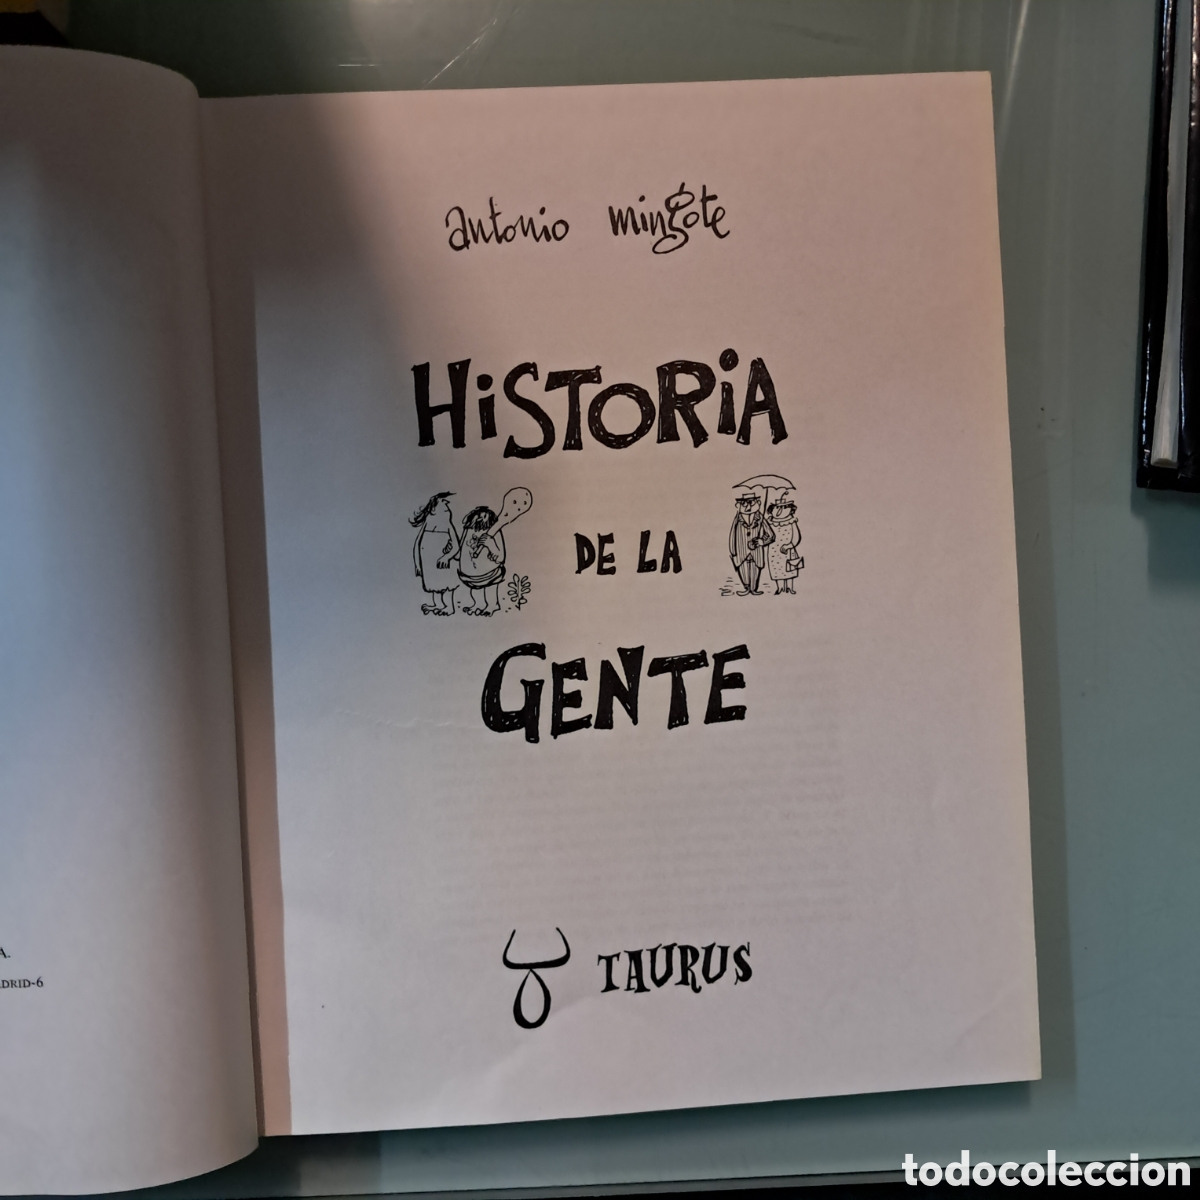 antonio mingote
HiSTORiA
DE LA
GENTE
TAURUS
A.
DRID-6
todocoleccion